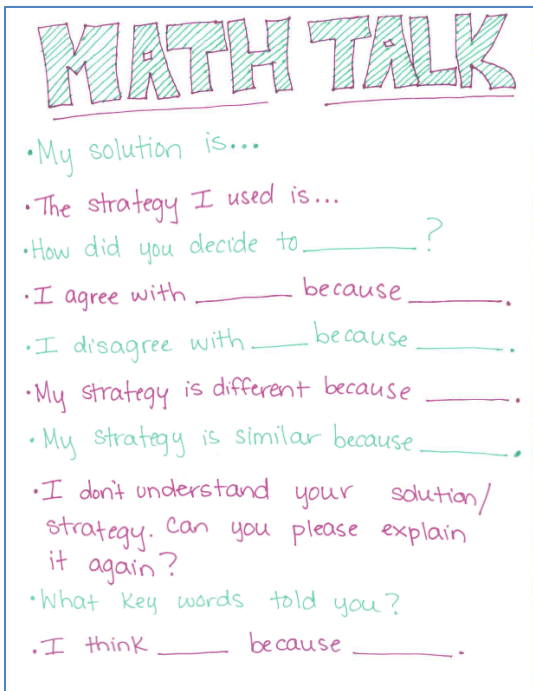 MATH TALK
•My solution is...
•The strategy I used is...
•How did you decide to________?
•I agree with _______ because _______.
•I disagree with ____ because ______.
•My strategy is different because ______.
•My strategy is similar because ______.
•I don't understand your solution/
strategy. Can you please explain
it again?
•What key words told you?
•I think _____ because _______.